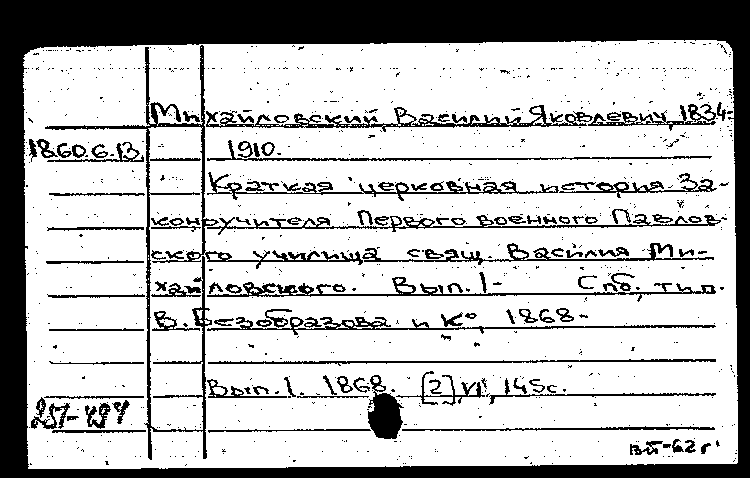 Михайловский, Василий Яковлевич, 1834-
18.60.6.13. 1910.
Краткая церковная история За-
коноучителя Первого военного Павлов-
ского училища свящ. Василия Ми-
хайловского. Вып. 1- Спб, тип.
В. Безобразова и К°, 1868-
Вып. 1. 1868. [2], VI, 145с.
251-494
вй-62г